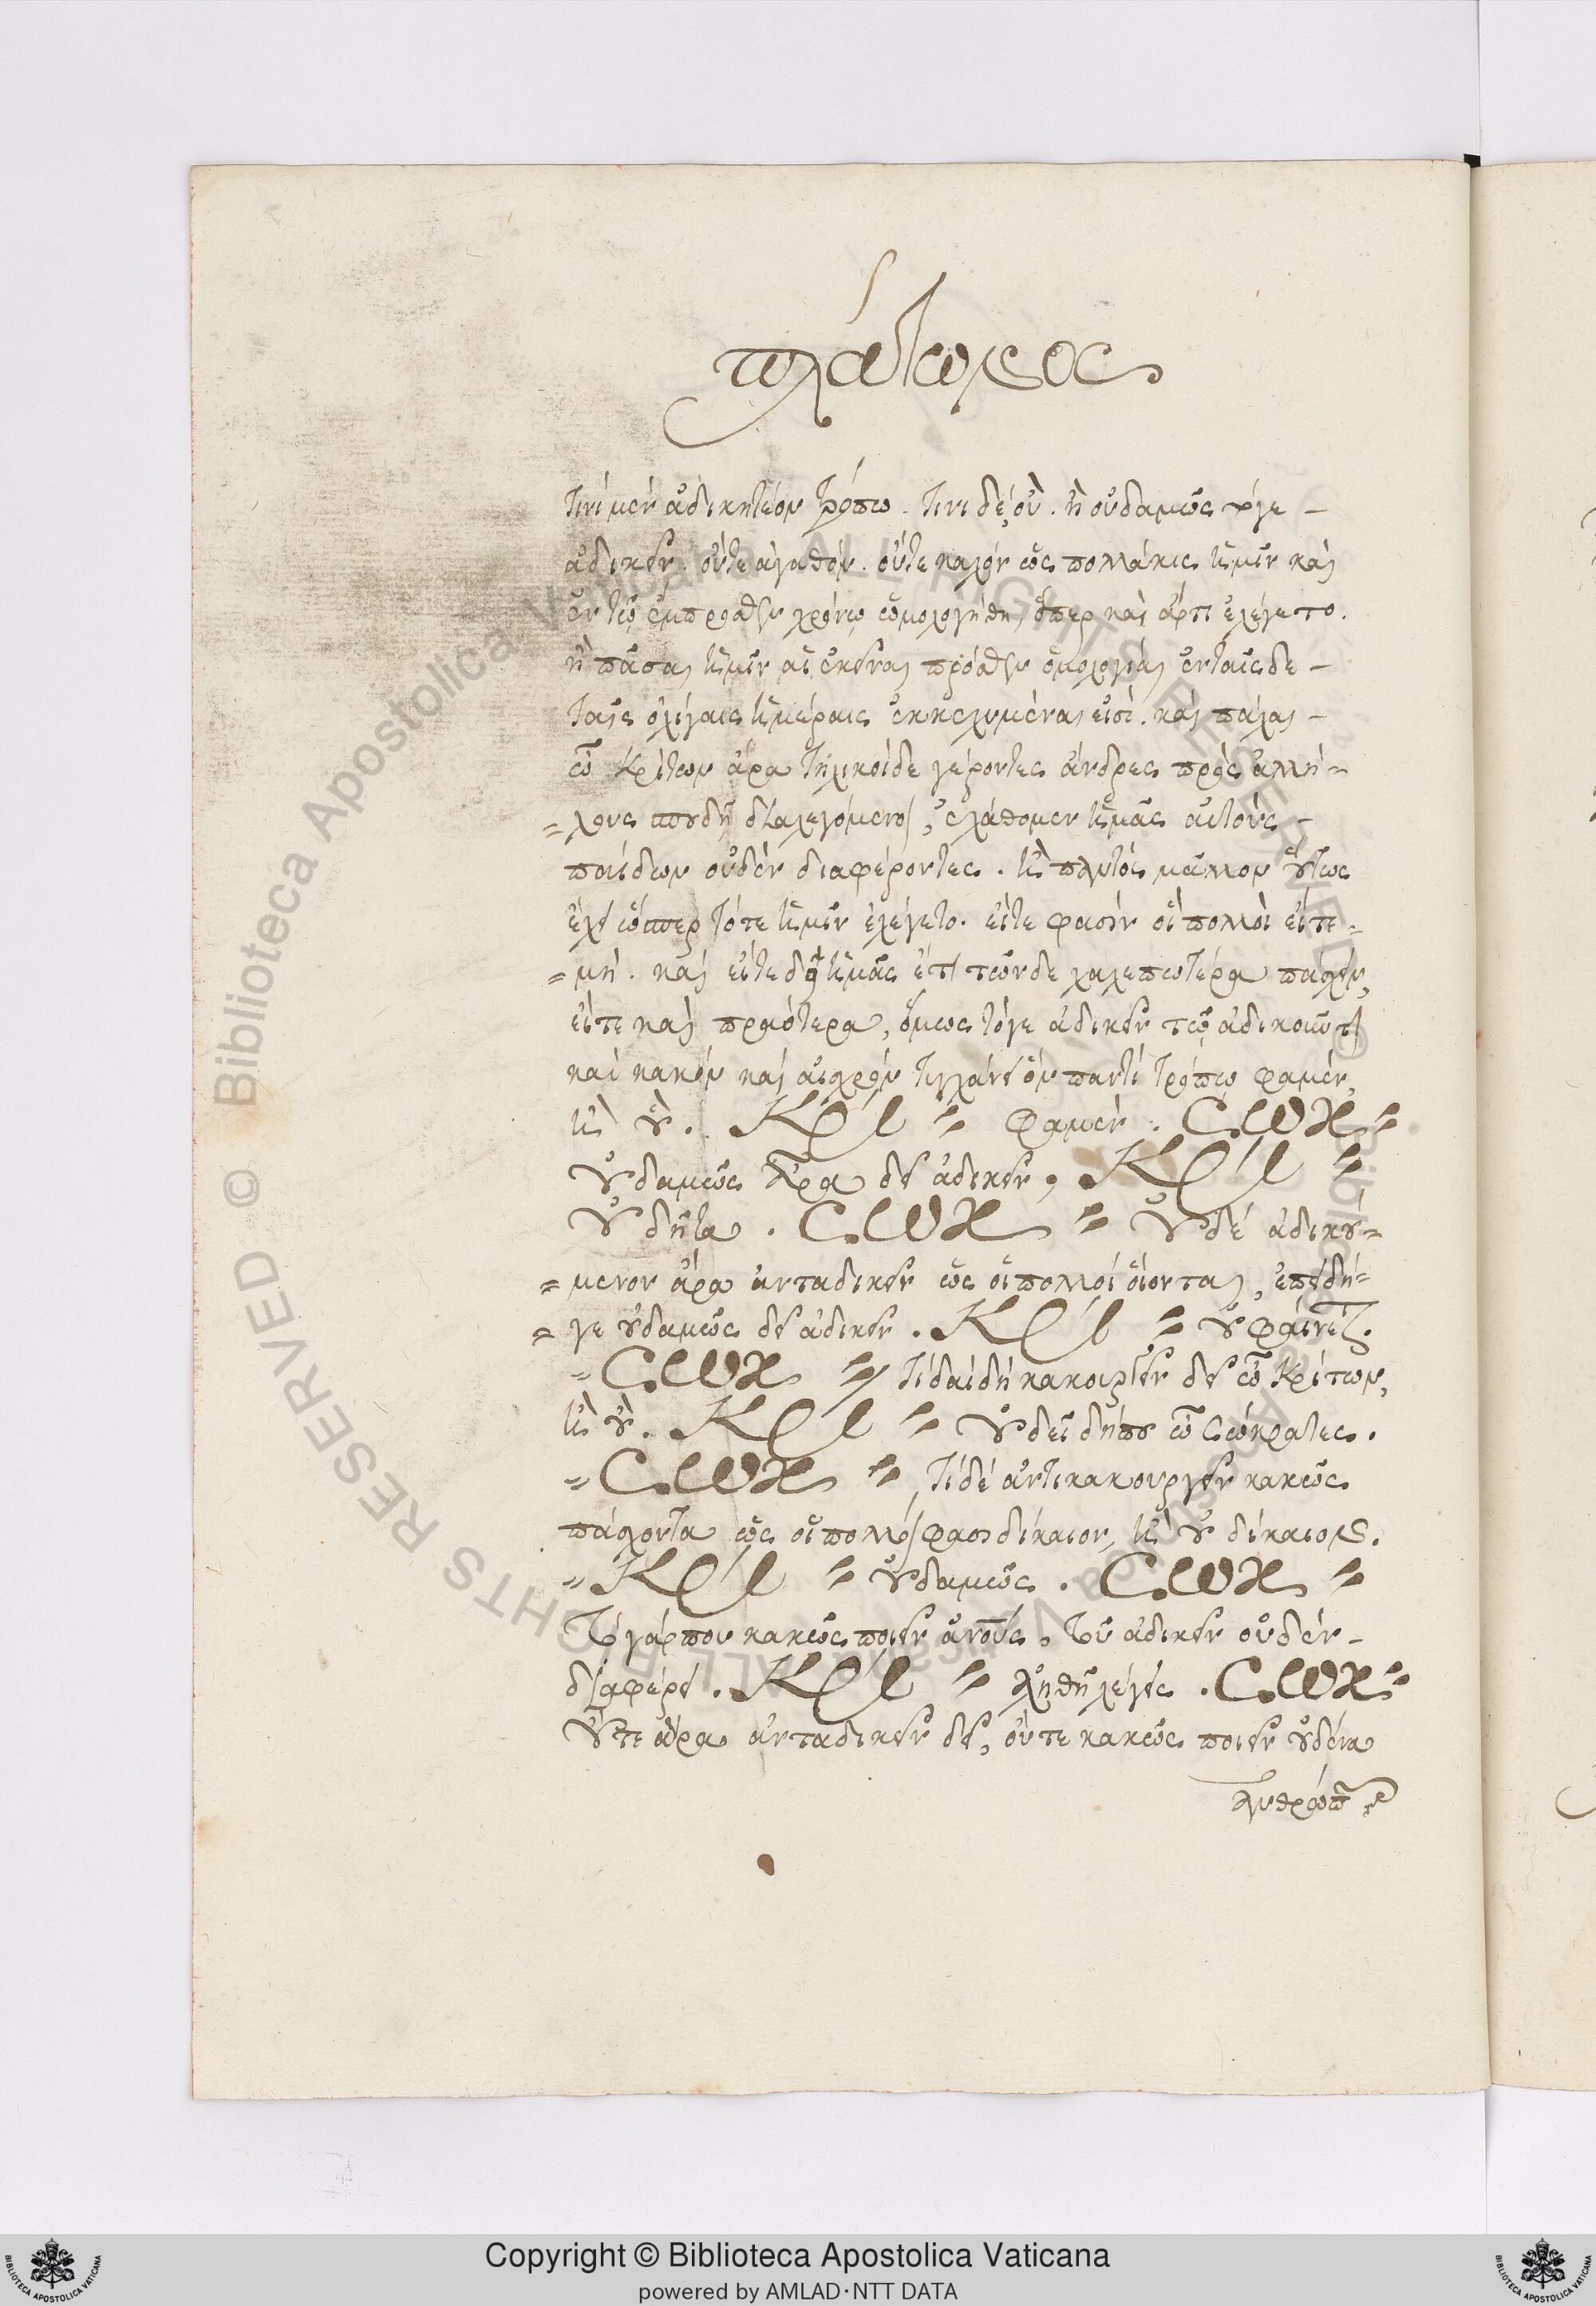 πλάτωνος
τινὶ μὲν ἀδικητέον τρόπω. τινὶ δὲ οὔ. ἢ οὐδαμῶς τόγε –
ἀδικεῖν. οὔτε ἀγαθόν. οὔτε καλόν ὡς πολλάκις ἡμῖν καὶ
ἐν τῷ ἔμπροσθεν χρόνῳ ὡμολογήθη, ὅπερ καὶ ἄρτι ἐλέγετο.
ἢ πᾶσαι ἡμῖν αἱ ἐκεῖναι πρόσθεν ὁμολογίαι ἐν ταῖσδε –
ταῖς ὀλίγαις ἡμέραις ἐκκεχυμέναι εἰσί. καὶ πάλαι –
ὦ Κρίτων ἄρα τηλικοίδε γέροντες ἄνδρες πρὸς ἀλλή=
=λους σπουδῇ διαλεγόμενοι, ἐλάθομεν ἡμᾶς αὐτούς –
παίδων οὐδὲν διαφέροντες. ἢ παντὸς μᾶλλον οὕτως
ἔχει ὥσπερ τότε ἡμῖν ἐλέγετο. εἴτε φασὶν οἱ πολλοὶ εἴτε=
=μή. καὶ εἴτε δεῖ ἡμᾶς ἔτι τῶνδε χαλεπώτερα πάσχειν,
εἴτε καὶ πραότερα, ὅμως τόγε ἀδικεῖν τῷ ἀδικοῦντι
καὶ κακὸν καὶ αἰσχρὸν τυγχάνει ὂν παντὶ τρόπῳ φαμέν,
ἢ οὔ. ΚΡΙ = Φαμέν. CΩΚ=
οὐδαμῶς ἄρα δεῖ ἀδικεῖν, ΚΡΙ =
οὐ δῆτα. CΩΚ = οὐδὲ ἀδικού=
=μενον ἄρα ἀνταδικεῖν ὡς οἱ πολλοὶ οἴονται, ἐπειδή=
=γε οὐδαμῶς δεῖ ἀδικεῖν. ΚΡΙ = οὐ φαίνετ.
=CΩΚ = τί δαὶ δὴ κακουργεῖν δεῖ ὦ Κρίτων,
ἢ οὔ. ΚΡΙ = οὐ δεῖ δήπου ὦ Σώκρατες.
=CΩΚ = τί δὲ ἀντικακουργεῖν κακῶς
πάσχοντα ὡς οἱ πολλοί φασι δίκαιον, ἢ οὐ δίκαιον.
=ΚΡΙ = οὐδαμῶς. CΩΚ =
Τὸ γάρ που κακῶς ποιεῖν ἀνούς. τοῦ ἀδικεῖν οὐδὲν –
διαφέρει. ΚΡΙ = ἀληθῆ λέγεις. CΩΚ=
οὔτε ἄρα ἀνταδικεῖν δεῖ, οὔτε κακῶς ποιεῖν οὐδένα
ἀνθρώπ
Copyright © Biblioteca Apostolica Vaticana
powered by AMLAD·NTT DATA